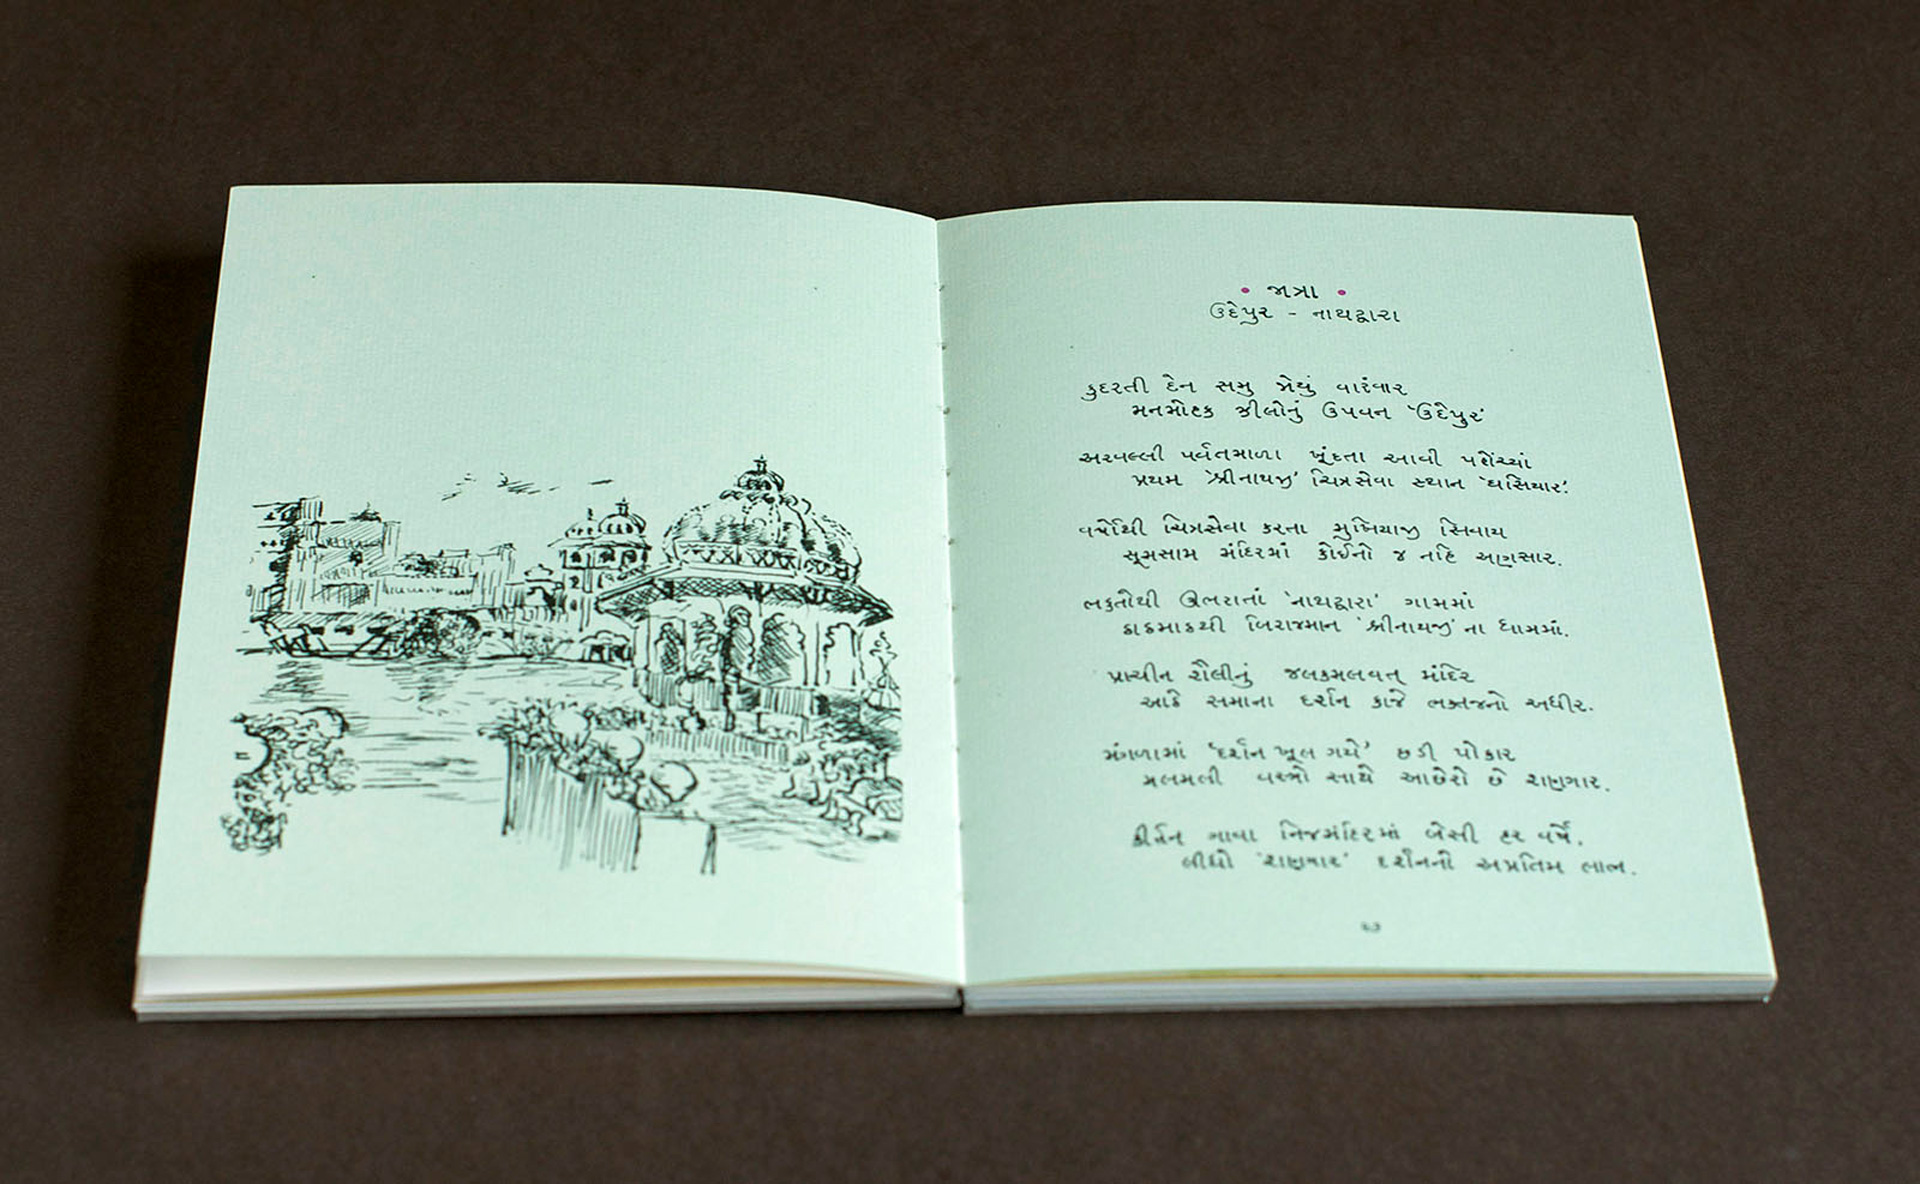 • જાત્રા •
ઉદેપુર - નાથદ્વારા
કુદરતી દેન સમુ મેઘું વારંવાર
મનમોહક ઝીલોનું ઉપવન 'ઉદેપુર'
અરવલ્લી પર્વતમાળા ખૂંદતા આવી પહોંચ્યાં
પ્રથમ 'શ્રીનાથજી' ચિત્રસેવા સ્થાન 'ઘસિયાર'.
વર્ષોથી ચિત્રસેવા કરતા મુખિયાજી સિવાય
સૂમસામ મંદિરમાં કોઈનો જ નહિ અણસાર.
ભક્તોથી ઊભરાતાં 'નાથદ્વારા' ગામમાં
ઠાઠમાઠથી બિરાજમાન 'શ્રીનાથજી' ના ધામમાં.
પ્રાચીન શૈલીનું જલકમલવત્ મંદિર
આઠે સમાના દર્શન કાજે ભક્તજનો અધીર.
મંગળામાં 'દર્શન ખૂલ ગયે' છડી પોકાર
મલમલી વસ્ત્રો સાથે આછેરો છે શણગાર.
કીર્તન ગાવા નિજમંદિરમાં બેસી હર વર્ષે.
લીધો 'શણગાર' દર્શનનો અપ્રતિમ લાભ.